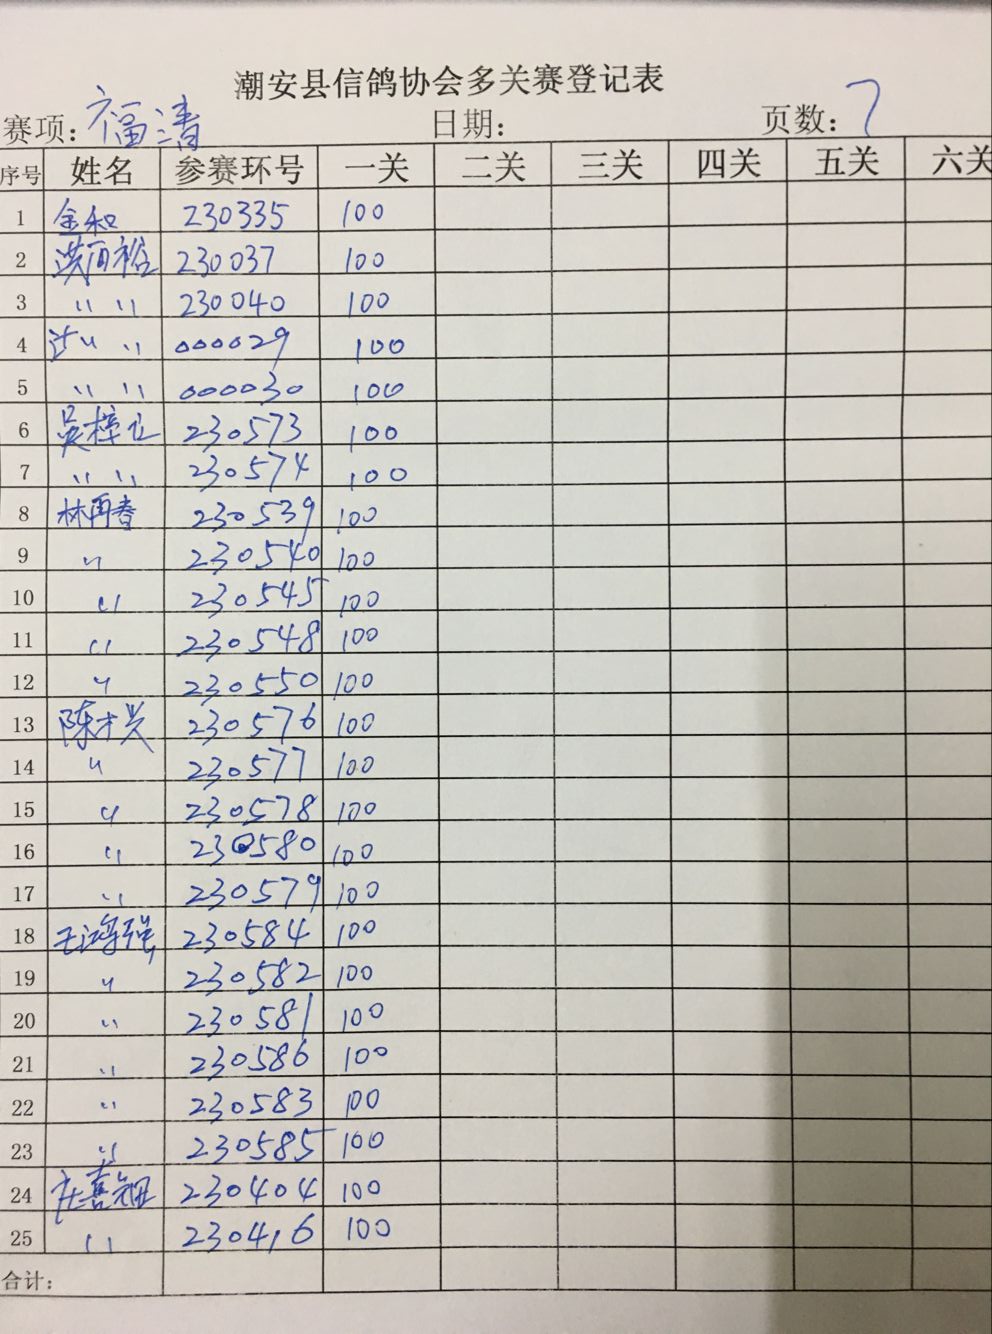 潮安县信鸽协会多关赛登记表
赛项: 福清 日期: 页数: 7
序号 姓名 参赛环号 一关 二关 三关 四关 五关 六关
1 金和 230335 100
2 洪页裕 230037 100
3 〃 〃 230040 100
4 〃 〃 000029 100
5 〃 〃 000030 100
6 吴梓 230573 100
7 〃 〃 230574 100
8 林再春 230539 100
9 〃 230540 100
10 〃 230545 100
11 〃 230548 100
12 〃 230550 100
13 陈才兴 230576 100
14 〃 230577 100
15 〃 230578 100
16 〃 230580 100
17 〃 230579 100
18 王鸿强 230584 100
19 〃 230582 100
20 〃 230581 100
21 〃 230586 100
22 〃 230583 100
23 〃 230585 100
24 庄喜钿 230404 100
25 〃 230416 100
合计: